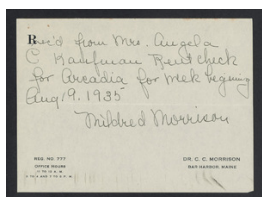 Rec'd from Mrs. Angela
C Kaufman Rent check
for Arcadia for week begining
Aug 19. 1935
Mildred Morrison
REG. NO. 777
OFFICE HOURS
11 TO 12 A. M.
DR. C. C. MORRISON
BAR HARBOR, MAINE